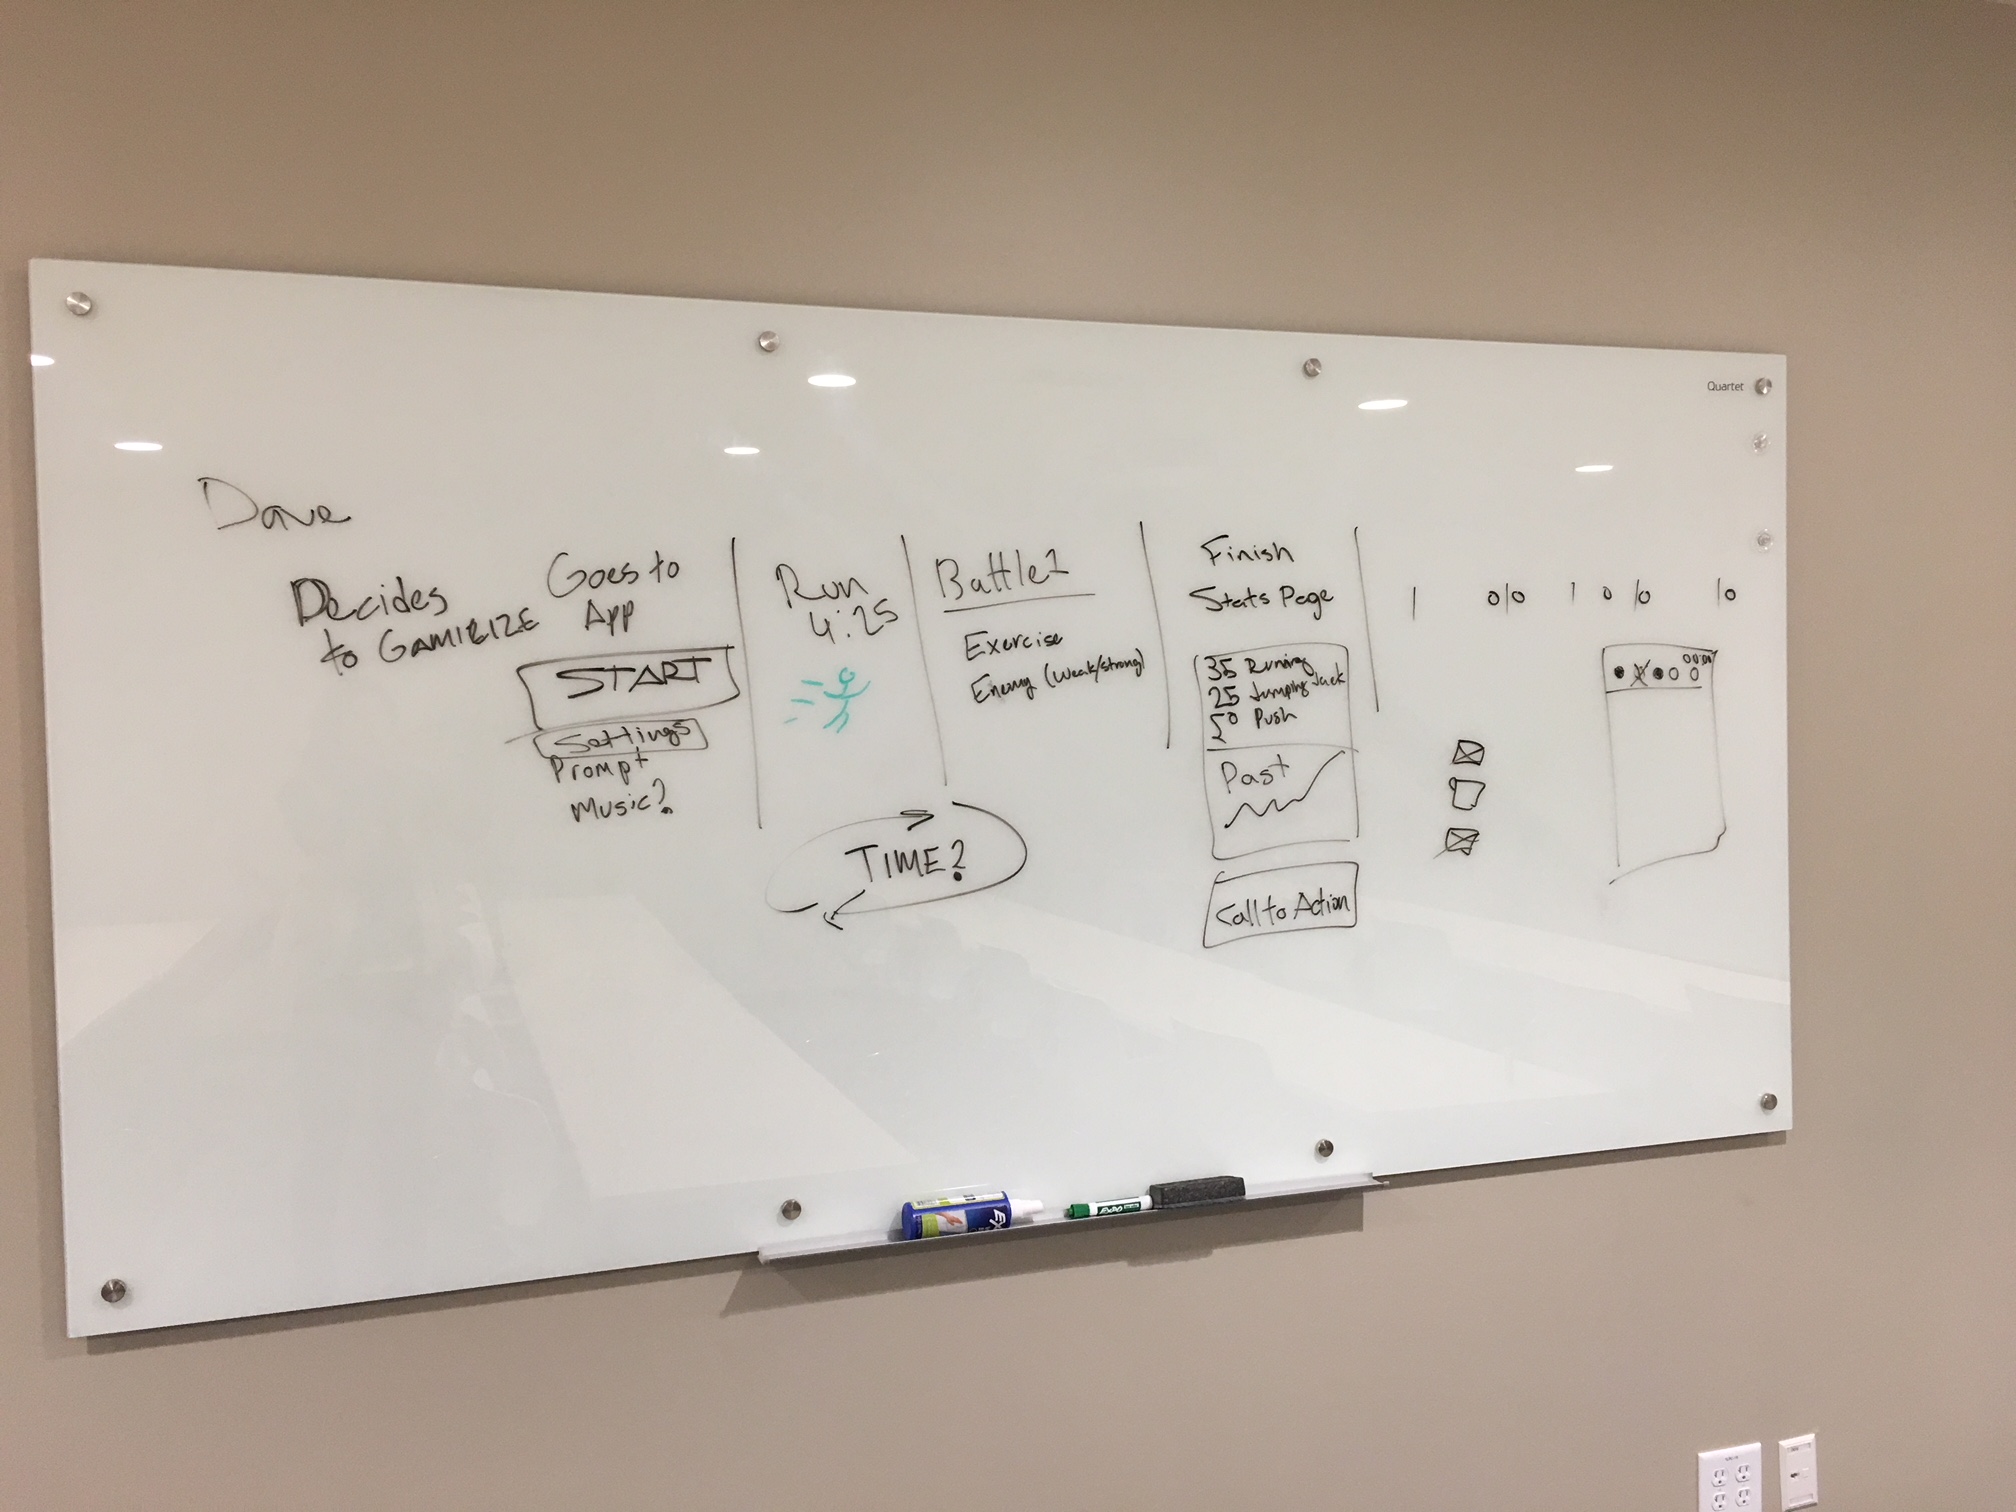 Quartet
Dave
Decides
to GAMIFIZE
Goes to
App
START
Settings
Prompt
Music?
Run
4:25
Battle 1
Exercise
Enemy (Weak/strong)
TIME?
Finish
Stats Page
35 Running
25 Jumping Jack
50 Push
Past
Call to Action
| 0/0 | 0 /0 |0
00:00
EXPO